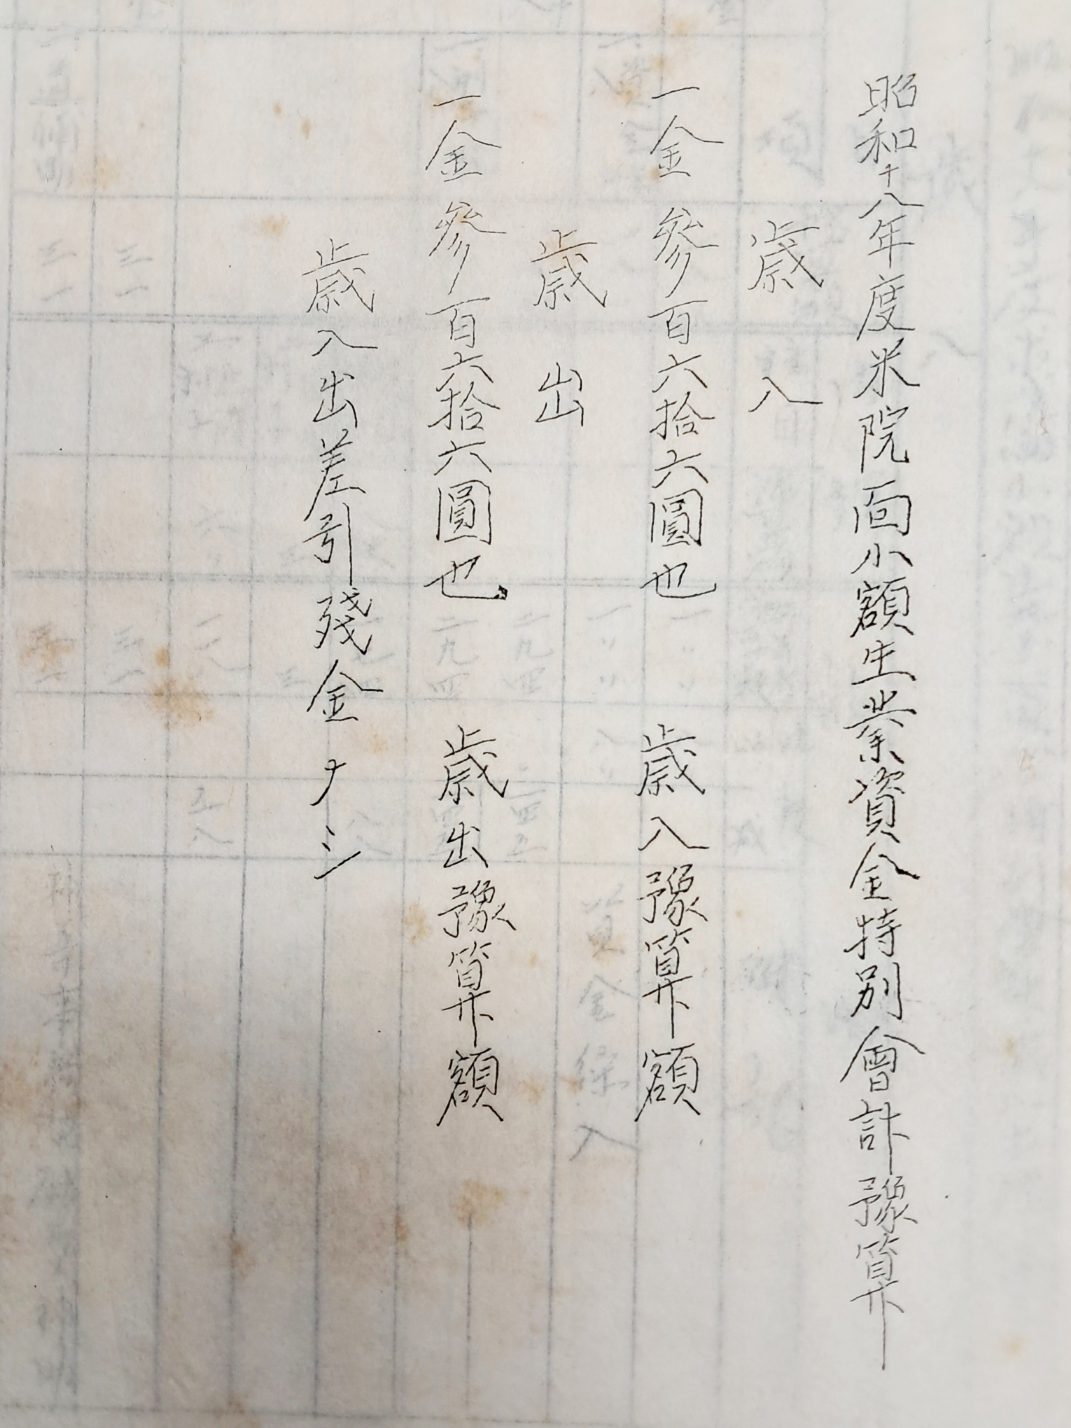 昭和十八年度米院面小額生業資金特別會計豫算
歳入
一金參百六拾六圓也 歳入豫算額
歳出
一金參百六拾六圓也 歳出豫算額
歳入出差引殘金ナシ